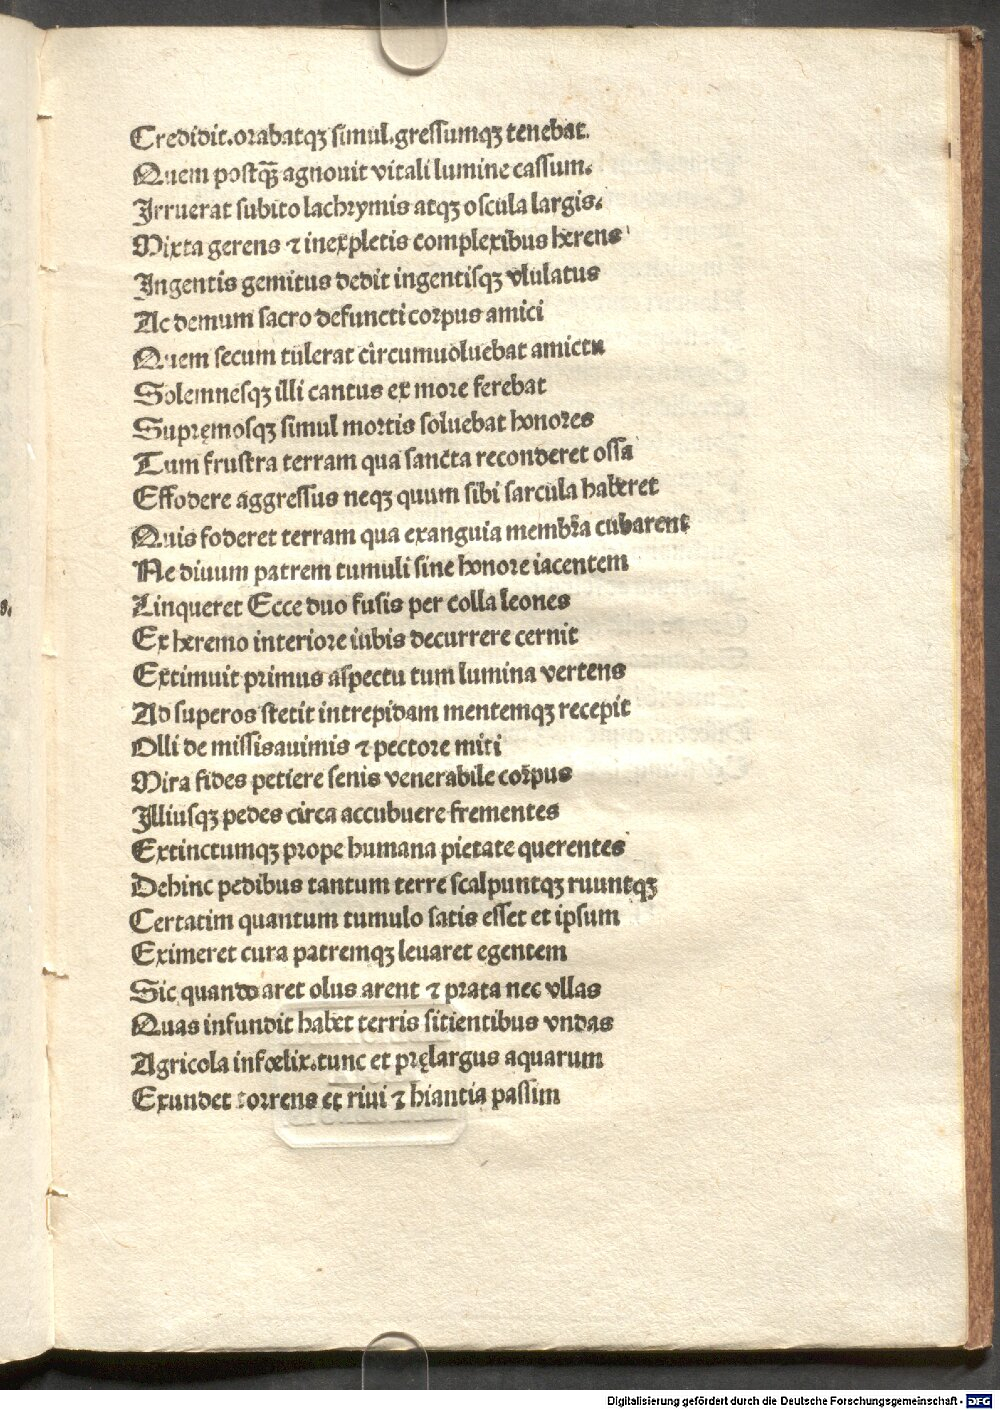 Credidit.orabatqꝫ simul.gressumqꝫ tenebat.
Quem postq̄ agnouit vitali lumine cassum.
Irruerat subito lachrymis atqꝫ oscula largis.
Mixta gerens ⁊ inexpletis complexibus herens
Ingentis gemitus dedit ingentisqꝫ vlulatus
Ac demum sacro defuncti corpus amici
Quem secum tulerat circumuoluebat amictu
Solemnesqꝫ illi cantus ex more ferebat
Supręmosqꝫ simul mortis soluebat honores
Tum frustra terram qua sancta reconderet ossa
Effodere aggressus neqꝫ quum sibi sarcula haberet
Quis foderet terram qua exanguia membra cubarent
Ne diuum patrem tumuli sine honore iacentem
Linqueret Ecce duo fusis per colla leones
Ex heremo interiore iubis decurrere cernit
Extimuit primus aspectu tum lumina vertens
Ad superos stetit intrepidam mentemqꝫ recepit
Olli demissis auimis ⁊ pectore miti
Mira fides petiere senis venerabile corpus
Illiusqꝫ pedes circa accubuere frementes
Extinctumqꝫ prope humana pietate querentes
Dehinc pedibus tantum terre scalpuntqꝫ ruuntqꝫ
Certatim quantum tumulo satis esset et ipsum
Eximeret cura patremqꝫ leuaret egentem
Sic quando aret olus arent ⁊ prata nec vllas
Quas infundit habet terris sitientibus vndas
Agricola infœlix.tunc et pręlargus aquarum
Exundet torrens et riui ⁊ hiantia passim
Digitalisierung gefördert durch die Deutsche Forschungsgemeinschaft - DFG